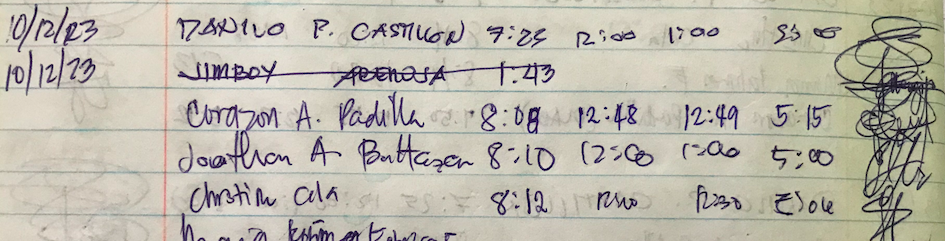 10/12/23 DANILO P. CASTILLON 7:23 12:00 1:00 5:00
10/12/23 JIMBOY ARENOJA 1:43
Corazon A. Padilla 8:09 12:48 12:49 5:15
Jonathan A Buttazon 8:10 12:00 1:00 5:00
Christine Cola 8:12 12:10 12:30 5:04